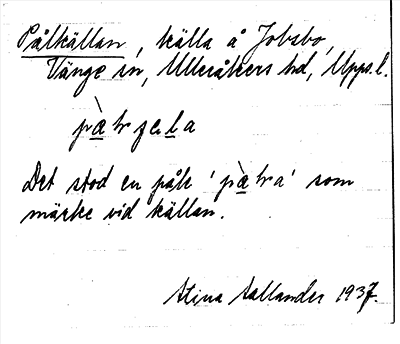 Pålkällan, källa å Jobsbo,
Vänge sn, Ulleråkers hd, Upps.l.
Det stod en påle ' ' som
märke vid källan.
Stina Sallander 1937.